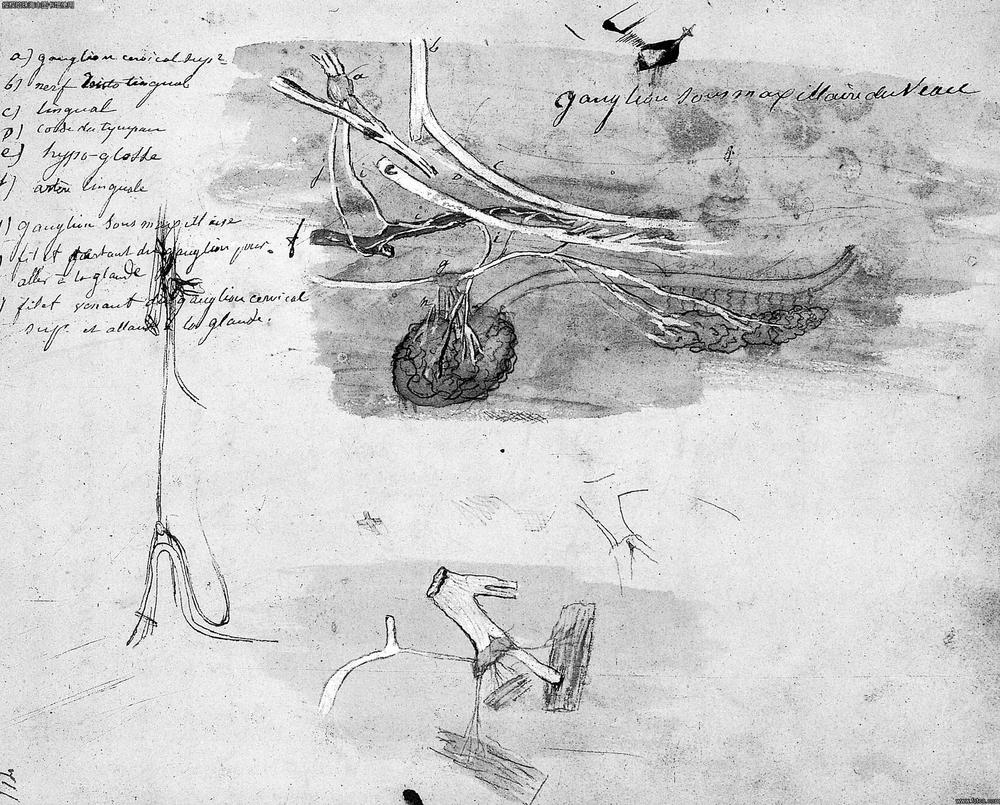 a) ganglion cervical sup.r
b) nerf lingual
c) lingual
D) corde du tympan
e) hypo-glosse
f) artère linguale
g) ganglion sous maxillaire
filet partant du ganglion pour
aller à la glande
filet venant du ganglion cervical
sup. et allant à la glande.
ganglion sous maxillaire du Veau
a
b
c
D
e
f
g
www.fotoe.com